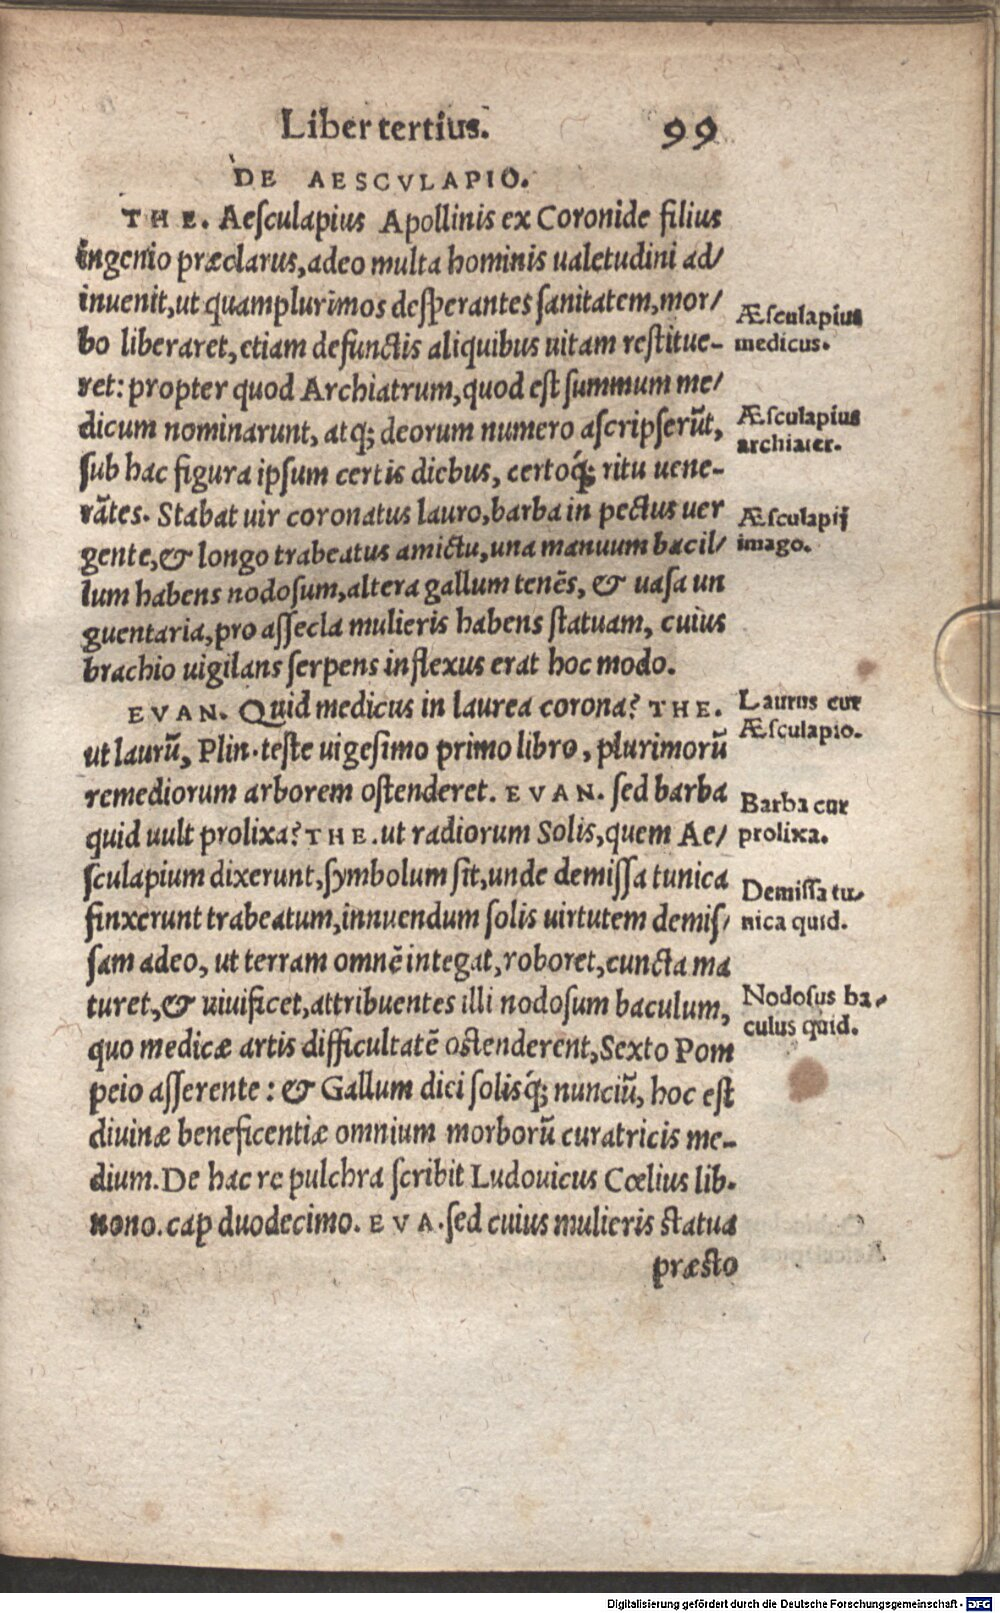 Liber tertius. 99
DE AESCVLAPIO.
THE. Aesculapius Apollinis ex Coronide filius
ingenio præclarus, adeo multa hominis ualetudini ad/
inuenit, ut quamplurimos desperantes sanitatem, mor/
bo liberaret, etiam defunctis aliquibus uitam restitue-
ret: propter quod Archiatrum, quod est summum me/
dicum nominarunt, atq; deorum numero ascripserũt,
sub hac figura ipsum certis diebus, certoq́; ritu uene-
rãtes. Stabat uir coronatus lauro, barba in pectus uer
gente, & longo trabeatus amictu, una manuum bacil/
lum habens nodosum, altera gallum tenẽs, & uasa un
guentaria, pro assecla mulieris habens statuam, cuius
brachio uigilans serpens inflexus erat hoc modo.
EVAN. Quid medicus in laurea corona? THE.
ut laurũ, Plin. teste uigesimo primo libro, plurimorũ
remediorum arborem ostenderet. EVAN. sed barba
quid uult prolixa? THE. ut radiorum Solis, quem Ae/
sculapium dixerunt, symbolum sit, unde demissa tunica
finxerunt trabeatum, innuendum solis uirtutem demis/
sam adeo, ut terram omnẽ integat, roboret, cuncta ma
turet, & uiuificet, attribuentes illi nodosum baculum,
quo medicæ artis difficultatẽ ostenderent, Sexto Pom
peio asserente: & Gallum dici solisq́; nunciũ, hoc est
diuinæ beneficentiæ omnium morborũ curatricis me-
dium. De hac re pulchra scribit Ludouicus Cœlius lib.
nono. cap duodecimo. EVA. sed cuius mulieris statua
præsto
Æsculapius
medicus.
Æsculapius
archiater.
Æsculapij
imago.
Laurus cur
Æsculapio.
Barba cur
prolixa.
Demissa tu-
nica quid.
Nodosus ba-
culus quid.
Digitalisierung gefördert durch die Deutsche Forschungsgemeinschaft - DFG